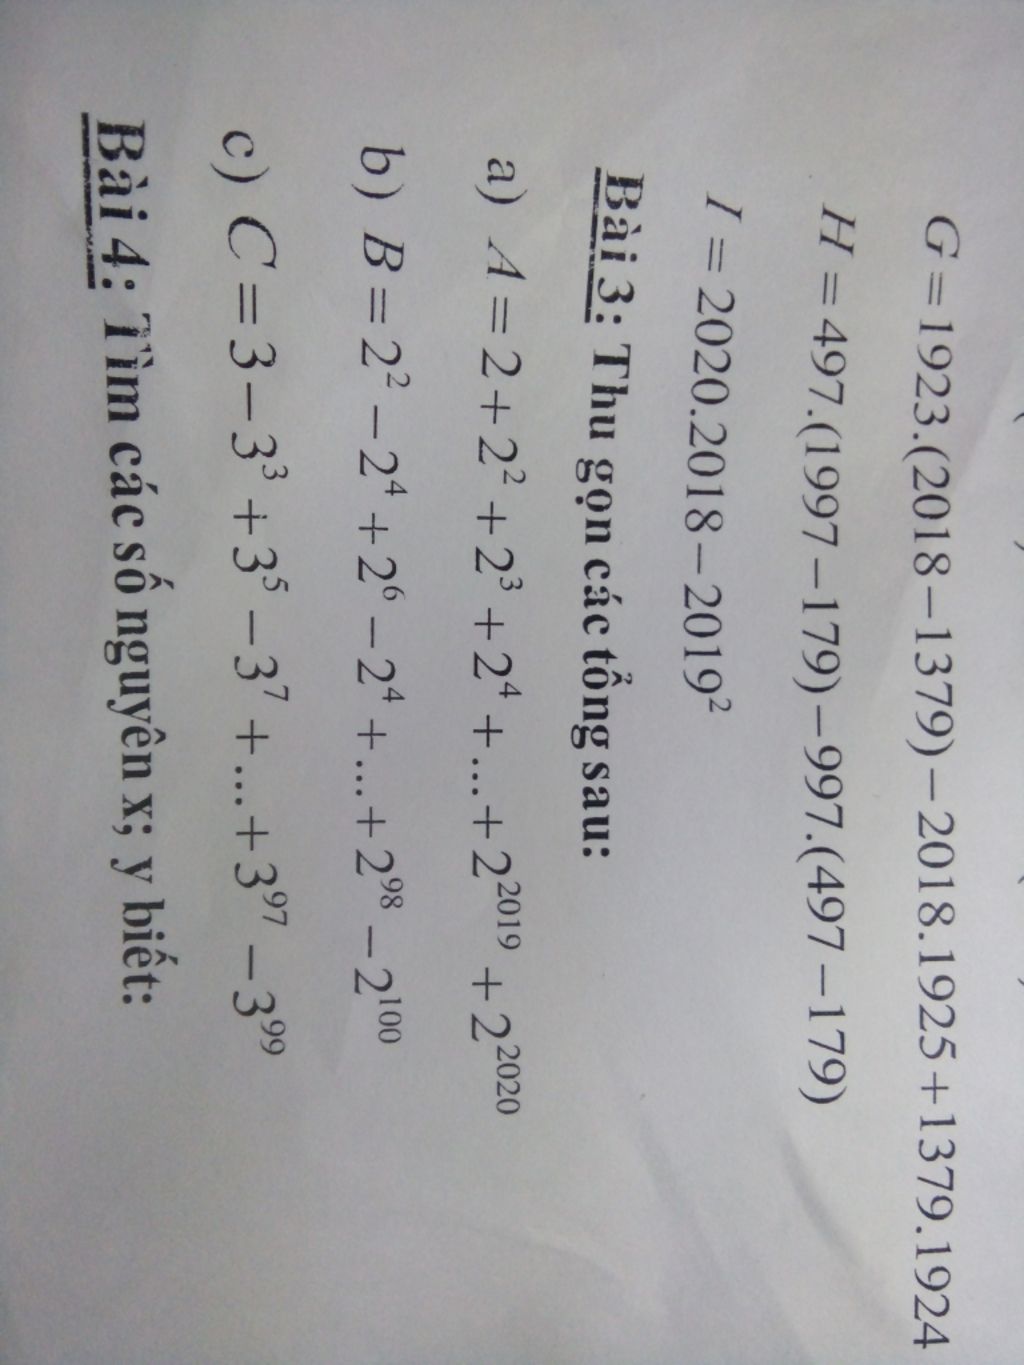 G = 1923.(2018 − 1379) − 2018.1925 + 1379.1924
H = 497.(1997 − 179) − 997.(497 − 179)
I = 2020.2018 − 2019²
Bài 3: Thu gọn các tổng sau:
a) A = 2 + 2² + 2³ + 2⁴ + ... + 2²⁰¹⁹ + 2²⁰²⁰
b) B = 2² − 2⁴ + 2⁶ − 2⁴ + ... + 2⁹⁸ − 2¹⁰⁰
c) C = 3 − 3³ + 3⁵ − 3⁷ + ... + 3⁹⁷ − 3⁹⁹
Bài 4: Tìm các số nguyên x; y biết: